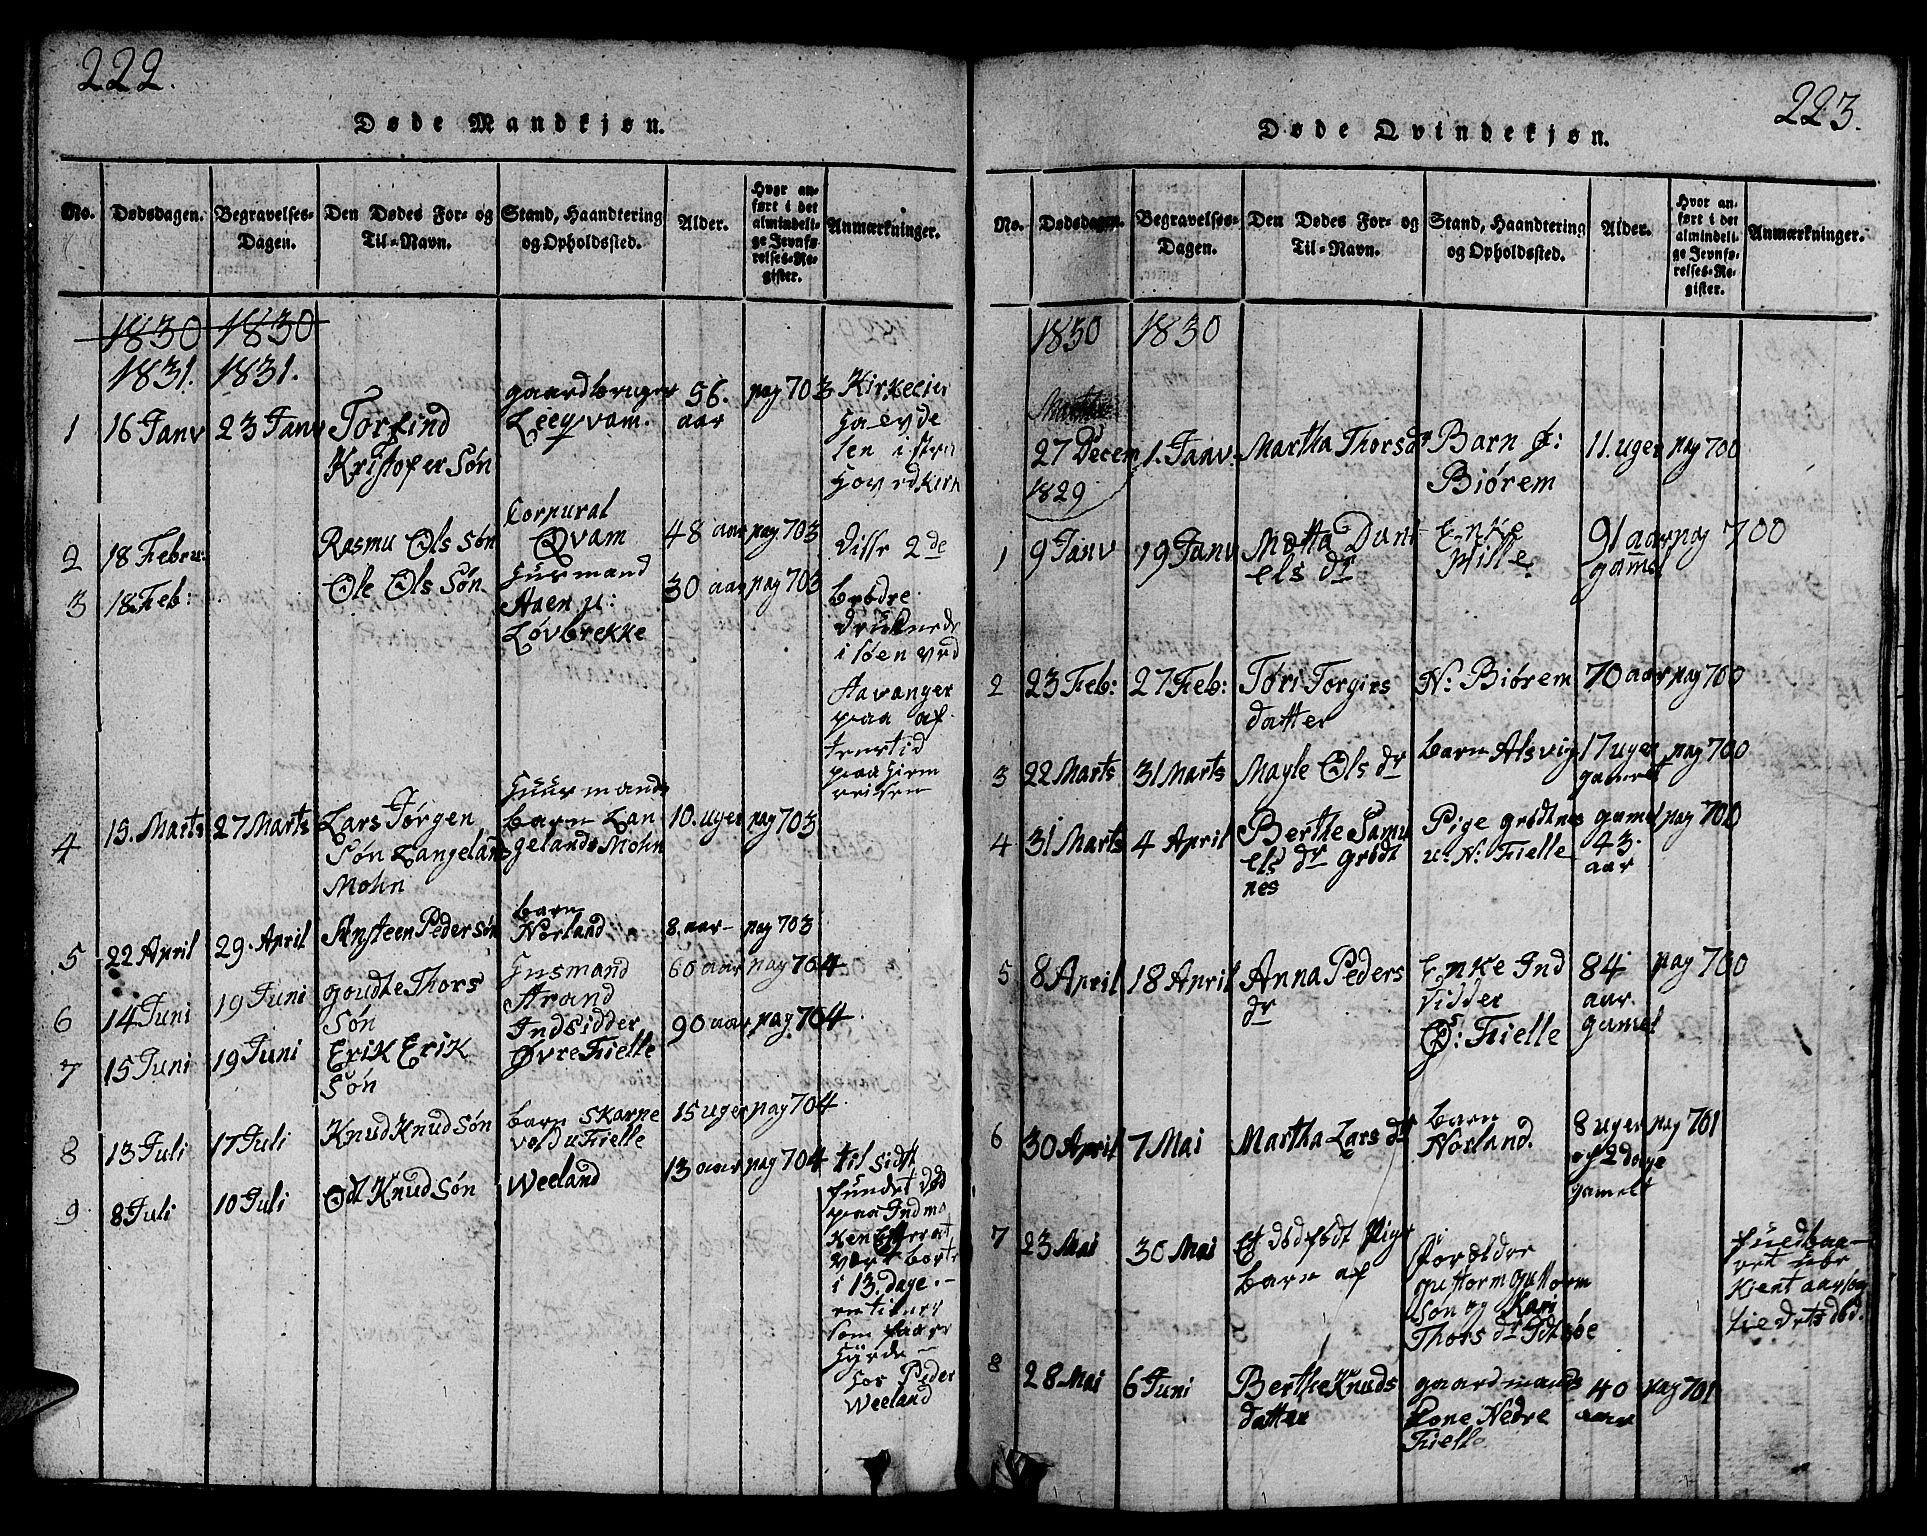 222.
Døde Mandkjøn.
No. Dødsdagen. Begravelses-Dagen. Den Dødes For- og Til-Navn. Stand, Haandtering og Opholdssted. Alder. Hvor anført i det almindelige Jevnførelses-Register. Anmærkninger.
1830 1830
1831. 1831.
1 16 Janv 23 Janv Torfind Kristofer Søn gaardbruger Leeqvam. 56. aar pag 703 Kirkeeier
2 18 Febru: Rasmu Ols Søn Corpural Qvam 48 aar pag 703 disse 2de
3 18. Feb: Ole Ols Søn. Huusmand Aaen u: Løvbrekke 30 aar pag 703 brødre druknede i søen ved
Stavanger
paa
paa Hiem
reisen
4 15. Marts 27 Marts Lars Jørgen Søn Langelands Mohn Huusmands barn Langelands Mohn 10. uger pag 703
5 22 April 29. April Ansteen Peder Søn barn Norland 8. aar- pag 703
6 14 Juni 19 Juni goudte Thors Søn Husmand Strand 60 aar pag 704
7 15 Juni 19 Juni Erik Erik Søn Indsidder Øvre Fielle 90 aar pag. 704
8 13 Juli 17 Juli Knud Knud Søn barn Skarpe vold u Fielle 15 uger pag 704
9. 8 Juli 10 Juli Odt Knud Søn Weeland 13 aar pag 704 til sidst
fundet død
paa Indma
ken Efter at
vært borte
i 13. dage. -
som faare
Hyrde -
Hos Peder
Weeland
223.
Døde Qvindekjøn.
No. Dødsdagen. Begravelses-Dagen. Den Dødes For- og Til-Navn. Stand, Haandtering og Opholdssted. Alder. Hvor anført i det almindelige Jevnførelses-Register. Anmærkninger.
1830 1830
27 Decem 1829 1. Janv. Martha Thorsdr Barn f: Biørem 11. uger pag 700
1 9 Janv 19 Janv Metta Dani els dr Enke Hille 91 aar gamel pag 700
2 23 Feb: 27 Feb: Tøri Torgirs datter N: Biørem 70 aar pag 700
3 22 Marts 31 Marts Mayle Ols dr barn Alsvig 17 uger gamelt pag 700
4 31 Marts 4 April Berthe Samu els dr grødt nes Pige grødtnes u: N: Fielle gamel 43. aar pag 700
5 8 April 18 April Anna Peders dr Enke Ind sidder Ø: Fielle 84 aar. gamel pag 700
6 30 April 7 Mai Martha Lars dr barn Norland. 8 uger of 2 dage gamelt pag 701
7 23 Mai 30 Mai Et dødfødt Pige barn af Forældre guttorm guttorm Søn og Kari Thors dr
8 28 Mai 6 Juni Berthe Knuds datter gaardmands Kone Nedre Fielle 40 aar pag 701